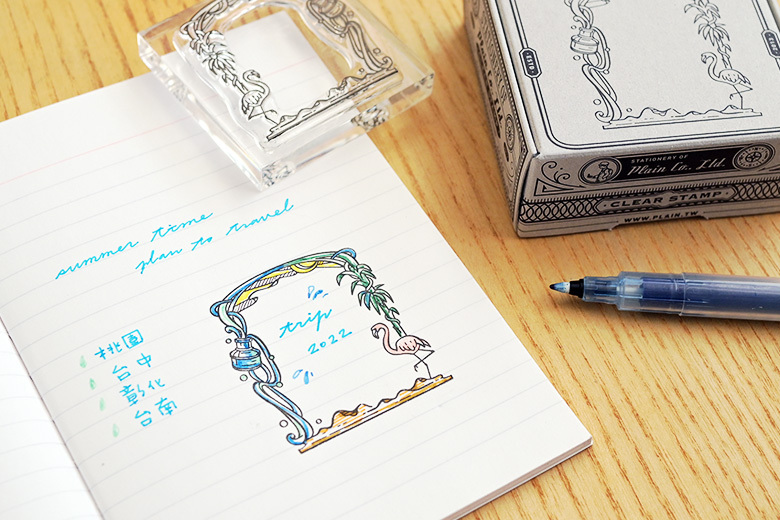 summer time
plan to travel
trip
2022
桃園
台中
彰化
台南
STATIONERY OF
Plain Co., Ltd.
CLEAR STAMP
WWW.PLAIN.TW